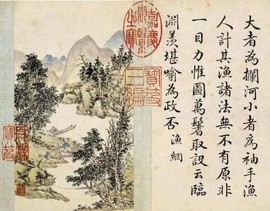 大者為攔河小者為袖手漁
人計其漁諸法無不有原非
一目力惟圖萬髩取設云臨
淵羨堪喻為政否 漁網